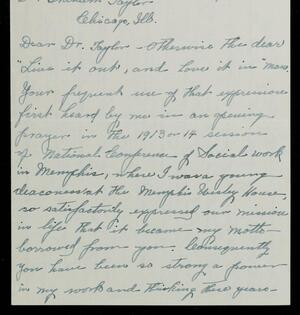 Graham Taylor
Chicago, Ill.
Dear Dr. Taylor - Otherwise the dear
"Live it out, and love it in" Man.
Your frequent use of that expression
first heard by me in an opening
prayer in the 1913 or 14 session
of National Conference of Social work
in Memphis, where I was a young
deaconess at the Memphis Wesley House,
so satisfactorily expressed our mission
in life that it became my motto
borrowed from you. Consequently
you have been so strong a power
in my work and thinking these years